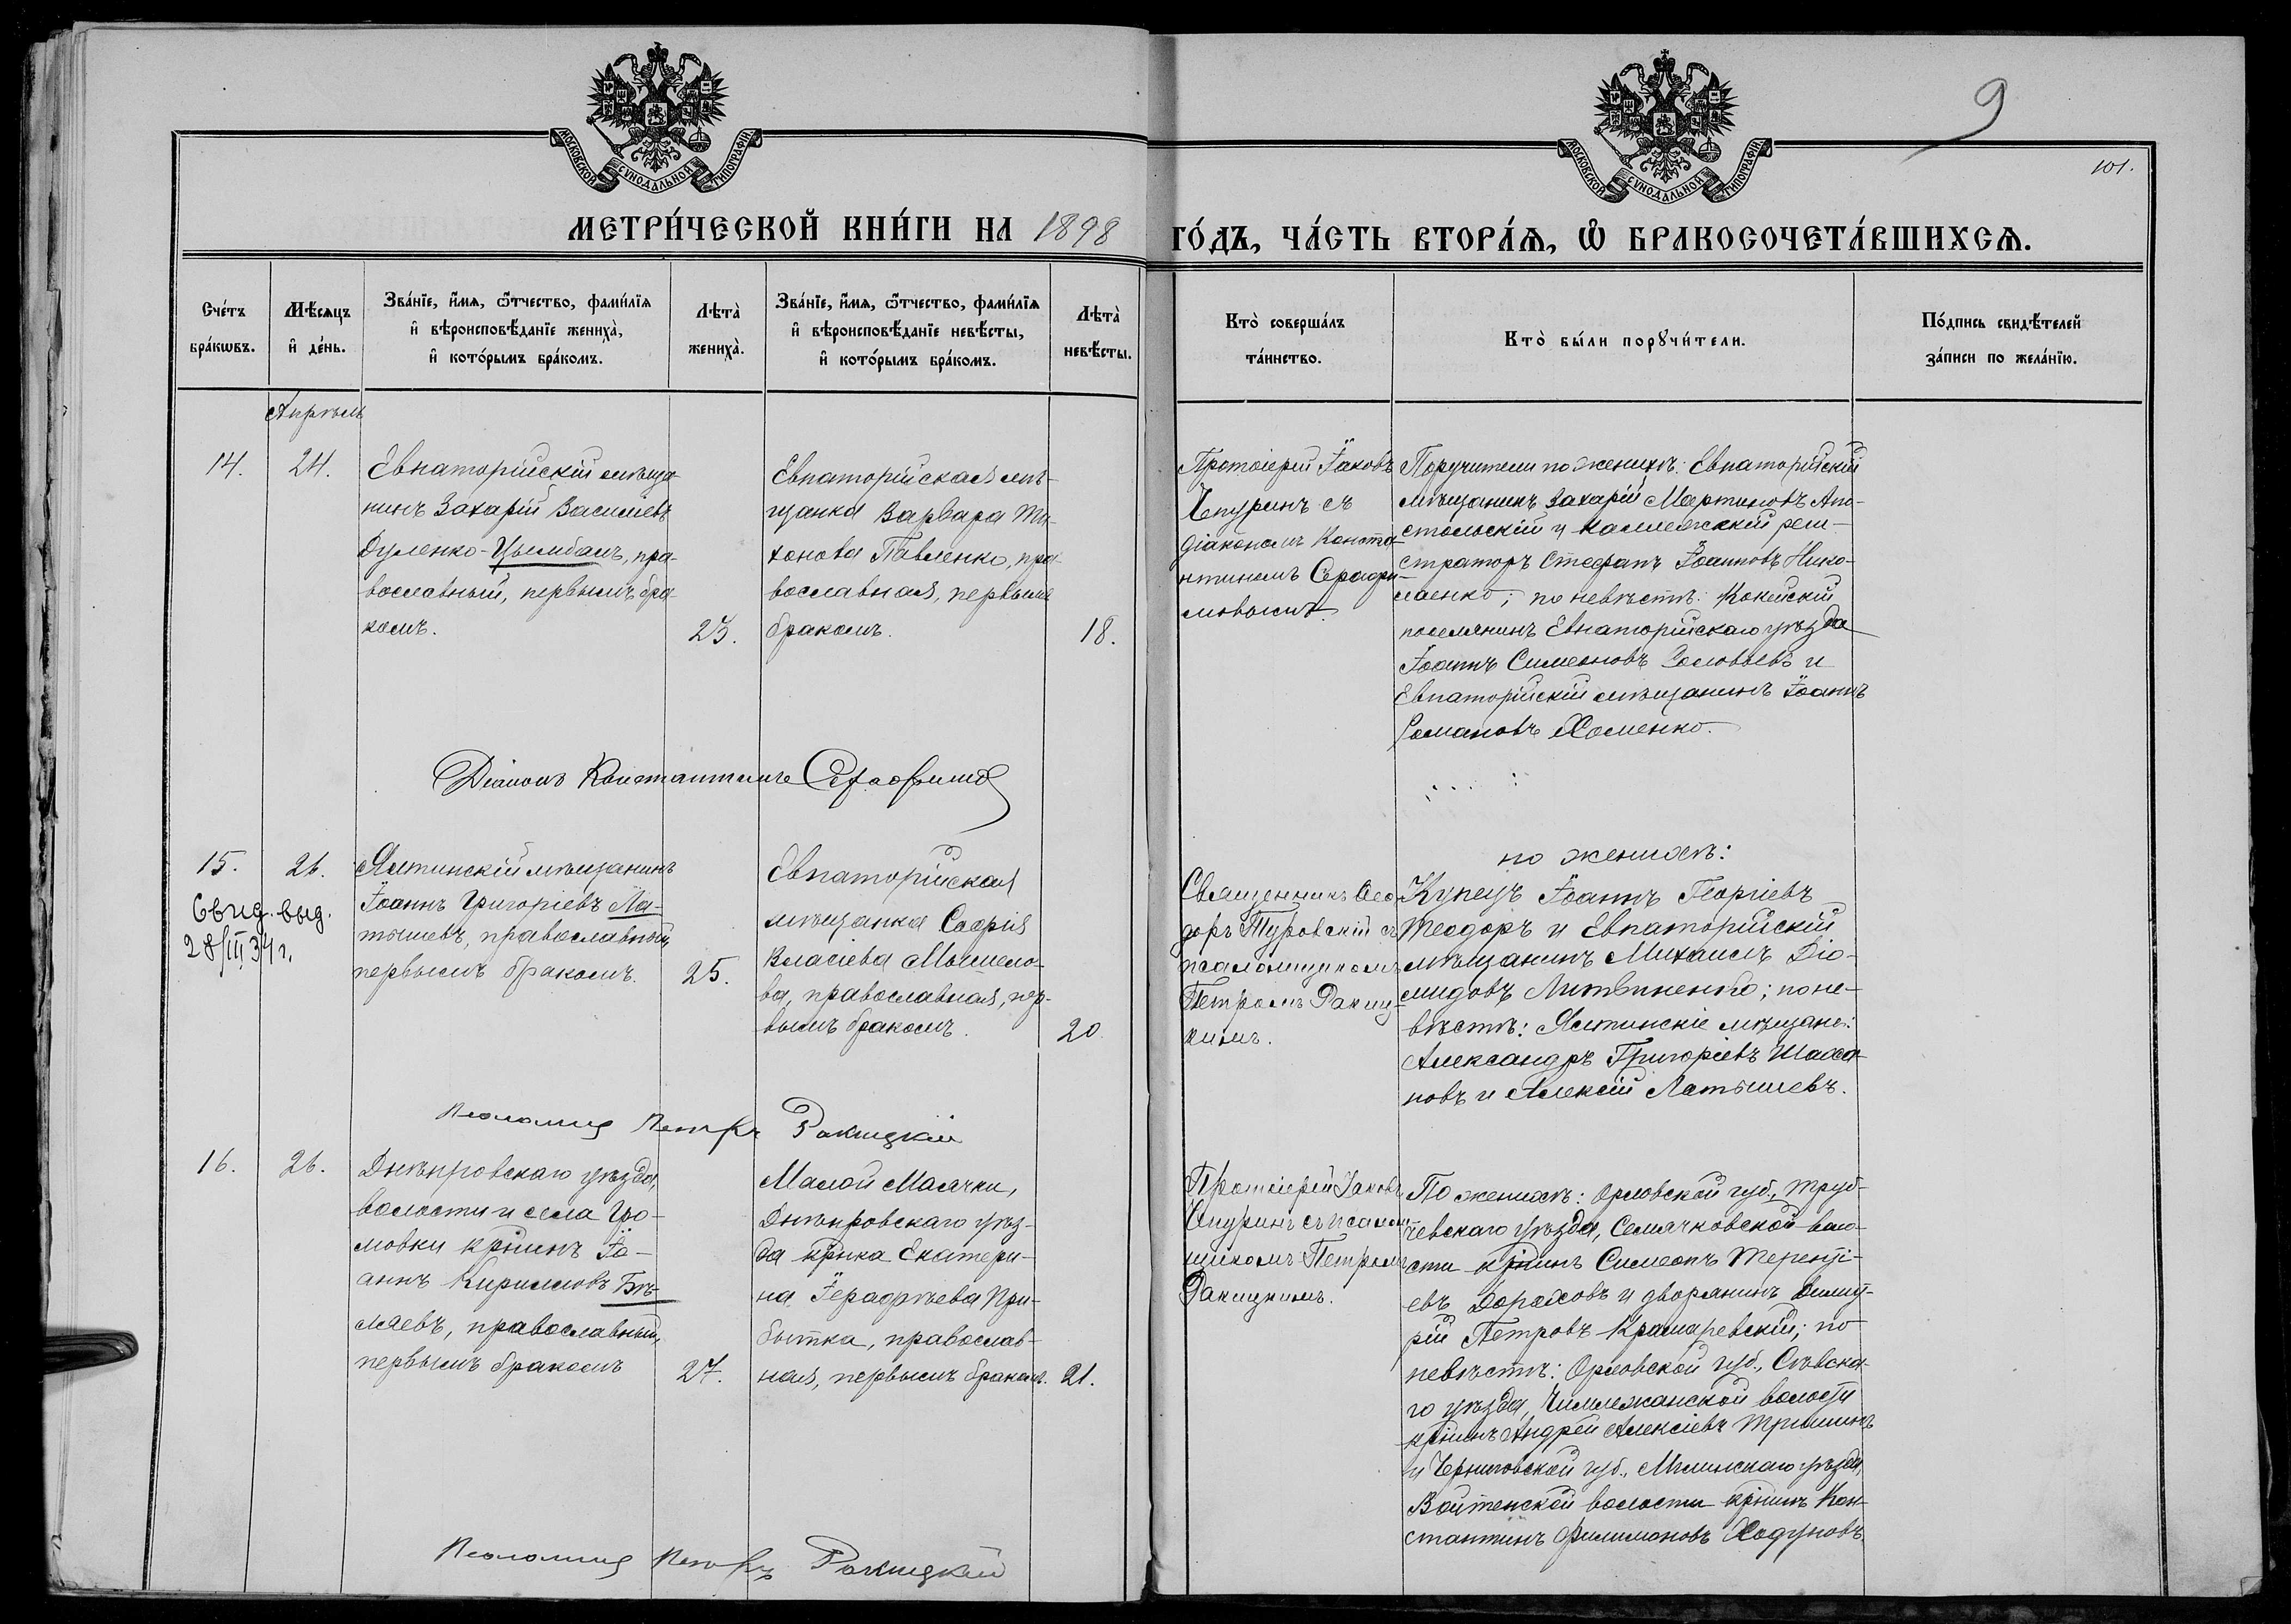 МОСКОВСКОЙ СѴНОДАЛЬНОЙ ТИПОГРАФІИ
МОСКОВСКОЙ СѴНОДАЛЬНОЙ ТИПОГРАФІИ
9
101.
МЕТРИ́ЧЕСКОЙ КНИ́ГИ НА 1898 ГО́ДЪ, ЧА́СТЬ ВТОРА́Ѧ, Ѡ҆ БРАКОСОЧЕТА́ВШИХСѦ.
Сче́тъ
бра́кѡвъ.
Мѣ́сѧцъ
и҆ де́нь.
Зва́нїе, и҆́мѧ, ѻ҆́тчество, фами́лїѧ
и҆ вѣроисповѣ́данїе жениха̀,
и҆ кото́рымъ бра́комъ.
Лѣта̀
жениха̀.
Зва́нїе, и҆́мѧ, ѻ҆́тчество, фами́лїѧ
и҆ вѣроисповѣ́данїе невѣ́сты,
и҆ кото́рымъ бра́комъ.
Лѣта̀
невѣ́сты.
Кто̀ соверша́лъ
та́инство.
Кто̀ бы́ли порꙋчи́тели.
По́дпись свидѣ́телей
за́писи по жела́нїю.
Апрѣль
14.
24.
Евпаторійскій мѣща-
нинъ Захарій Василіевъ
Дуленко-Цымбалъ, пра-
вославный, первымъ бра-
комъ.
23.
Евпаторійская мѣ-
щанка Варвара Ти-
хонова Павленко, пра-
вославная, первымъ
бракомъ.
18.
Протоіерей Іаковъ
Чепуринъ съ
діакономъ Конста-
нтиномъ Серафи-
мовымъ.
Поручители по женихѣ: Евпаторійскій
мѣщанинъ Захарій Мартиновъ Апо-
стольскій и коллежскій реги-
страторъ Стефанъ Іоанновъ Нико-
лаенко; по невѣстѣ:
поселянинъ Евпаторійскаго уѣзда
Іоаннъ Симеоновъ Соловьевъ и
Евпаторійскій мѣщанинъ Іоаннъ
Романовъ Хоменко.
Діаконъ Константинъ Серафимов
15.
26.
Свид. выд.
28/III 34 г.
Ялтинскій мѣщанинъ
Іоаннъ Григоріевъ Ла-
тышевъ, православный,
первымъ бракомъ.
25.
Евпаторійская
мѣщанка Софія
Власіева Мышело-
ва, православная, пер-
вымъ бракомъ.
20
Священникъ Ѳео-
доръ Туровскій съ
псаломщикомъ
Петромъ Ракиц-
кимъ.
по женихѣ:
Купецъ Іоаннъ Георгіевъ
Теодоръ и Евпаторійскій
мѣщанинъ Михаилъ Діо-
мидовъ Литвиненко; по не-
вѣстѣ: Ялтинскіе мѣщане:
Александръ Григоріевъ
новъ и Алексій Латышевъ.
Псаломщ Петръ Ракицкій
16.
26.
Днѣпровскаго уѣзда,
волости и села Гро-
мовки кр-нинъ Іо-
аннъ Кирилловъ Бѣ-
ляевъ, православный,
первымъ бракомъ
27.
Малой Маячки,
Днѣпровскаго уѣз-
да кр-нка Екатери-
на Іерофѣева При-
бытка, православ-
ная, первымъ бракомъ.
21.
Протоіерей Іаковъ
Чепуринъ съ псалом-
щикомъ Петромъ
Ракицкимъ.
По женихѣ: Орловской губ., Труб-
чевскаго уѣзда, Семячковской воло-
сти кр-нинъ Симеонъ Терентi-
евъ Дороховъ и дворянинъ Дими-
рій Петровъ Крамаревскій; по
невѣстѣ: Орловской губ., Сѣвска-
го уѣзда, волости
кр-нинъ Андрей Алексіевъ Тришинъ
и Черниговской губ., Мглинскаго уѣзда,
волости кр-нинъ Кон-
стантинъ Филимоновъ Ходуновъ.
Псаломщ Петръ Ракицкій